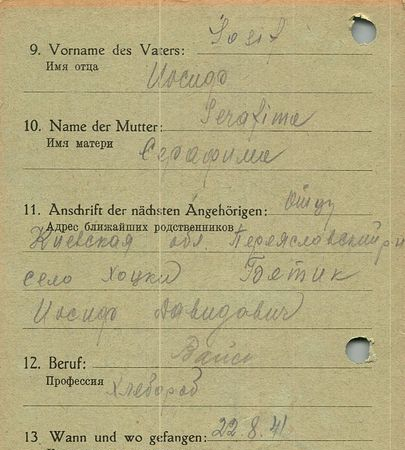 9. Vorname des Vaters: Iosif
Имя отца
Иосиф
10. Name der Mutter: Serafima
Имя матери
Серафима
11. Anschrift der nächsten Angehörigen: Отцу
Адрес ближайших родственников
Киевская обл. Переяславский р
село Хоцки Бятик
Иосиф Давидович
12. Beruf:
Профессия
Хлебороб
13 Wann und wo gefangen: 22.8.41